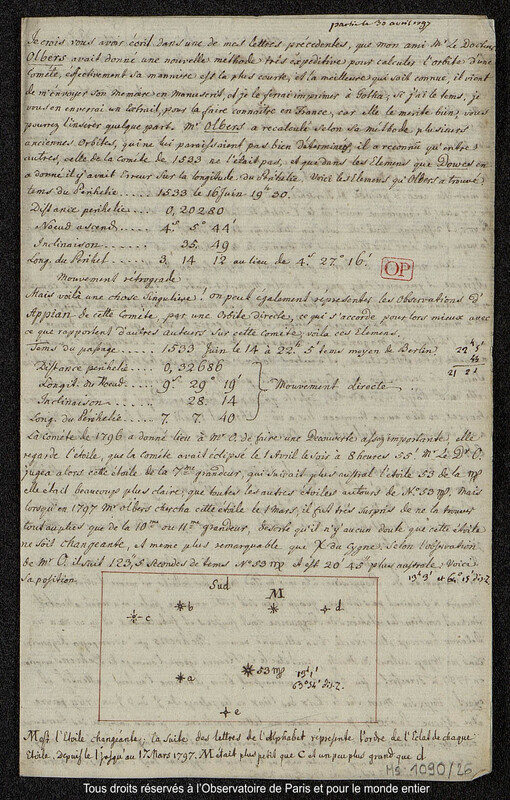 partie le 30 avril 1797
Je crois vous avoir écrit dans une de mes lettres precedentes, que mon ami Mr. Le Docteur
Olbers avait donné une nouvelle méthode très expéditive pour calculer l'orbite d'une
Comète, effectivement sa manniere est la plus courte, et la meilleure qui soit connue, il vient
de m'envoyer son Memoire en Manuscrit, et je le ferai imprimer à Gotha; Si j'ai le tems, je
vous en enverrai un Extrait, pour la faire connaître en France, car elle le merite bien, vous
pourrez l'insérer quelque part. Mr. Olbers a recalculé selon sa méthode plusieurs
anciennes Orbites, qui ne lui paraissaient pas bien determinées, il a reconnu qu'entre
autres, celle de la Comète de 1533 ne l'était pas, et que dans les Elemens que Douwes en
a donné il y avait Erreur sur la longitude du Périhélie. Voici les Elemens qu'Olbers a trouvé:
tems du Périhelie..... 1533 le 16 juin 19h 30'
Distance perihelie.... 0,20280
Nœud ascend...... 4s. 5° 44'
Inclinaison...... 35. 49
Long. du Périhel.... 3. 14 12 au lieu de 4s. 27° 16'
OP
Mouvement rétrograde
Mais voilà une chose Singulière! on peut également répresenter les Observations d'
Appian de cette Comète, par une Orbite directe, ce qui s'accorde pour lors mieux avec
ce que rapportent d'autres auteurs sur cette comète, voila ces Elemens.
Tems du passage..... 1533 Juin le 14 à 22h 5' tems moyen de Berlin. 22h 5'
44
21 21
Distance perihelie.... 0,32686
Longit. du Nœud... 9s 29° 19'
Inclinaison..... 28. 14
Long. du Périhélie.... 7. 7. 40
Mouvement directe
La Comète de 1796 a donné lieu à Mr O. de faire une Decouverte assez importante, elle
regarde l'étoile, que la Comète avait éclipsé le 1 Avril le soir à 8 heures 55'. Mr Le Dr O.
jugea alors cette étoile de la 7eme grandeur, qui suivait plus austral l'étoile 53 de la ♍
elle etait beaucoup plus claire, que toutes les autres étoiles autours de No 53 ♍, Mais
lorsqu'en 1797 Mr Olbers chercha cette étoile le 1 Mars, il fut très surpris de ne la trouver
tout au plus que de la 10me ou 11me grandeur, desorte qu'il n'y aucun doute que cette étoile
ne soit changeante, et meme plus remarquable, que χ du Cygne. Selon l'observation
de Mr O. il suit 123,5 secondes de tems No 53 ♍ et est 20' 45 plus australe. Voici
sa position.
Sud
M
b
c
d
a
53 ♍
e
M est l'Etoile changeante; la suite des lettres de l'Alphabet represente l'ordre de l'Eclat de chaque
Etoile, depuis le 1 jusqu'au 17 Mars 1797. M était plus petit que C et un peu plus grand que d
Ms 1090/26
Tous droits réservés à l'Observatoire de Paris et pour le monde entier